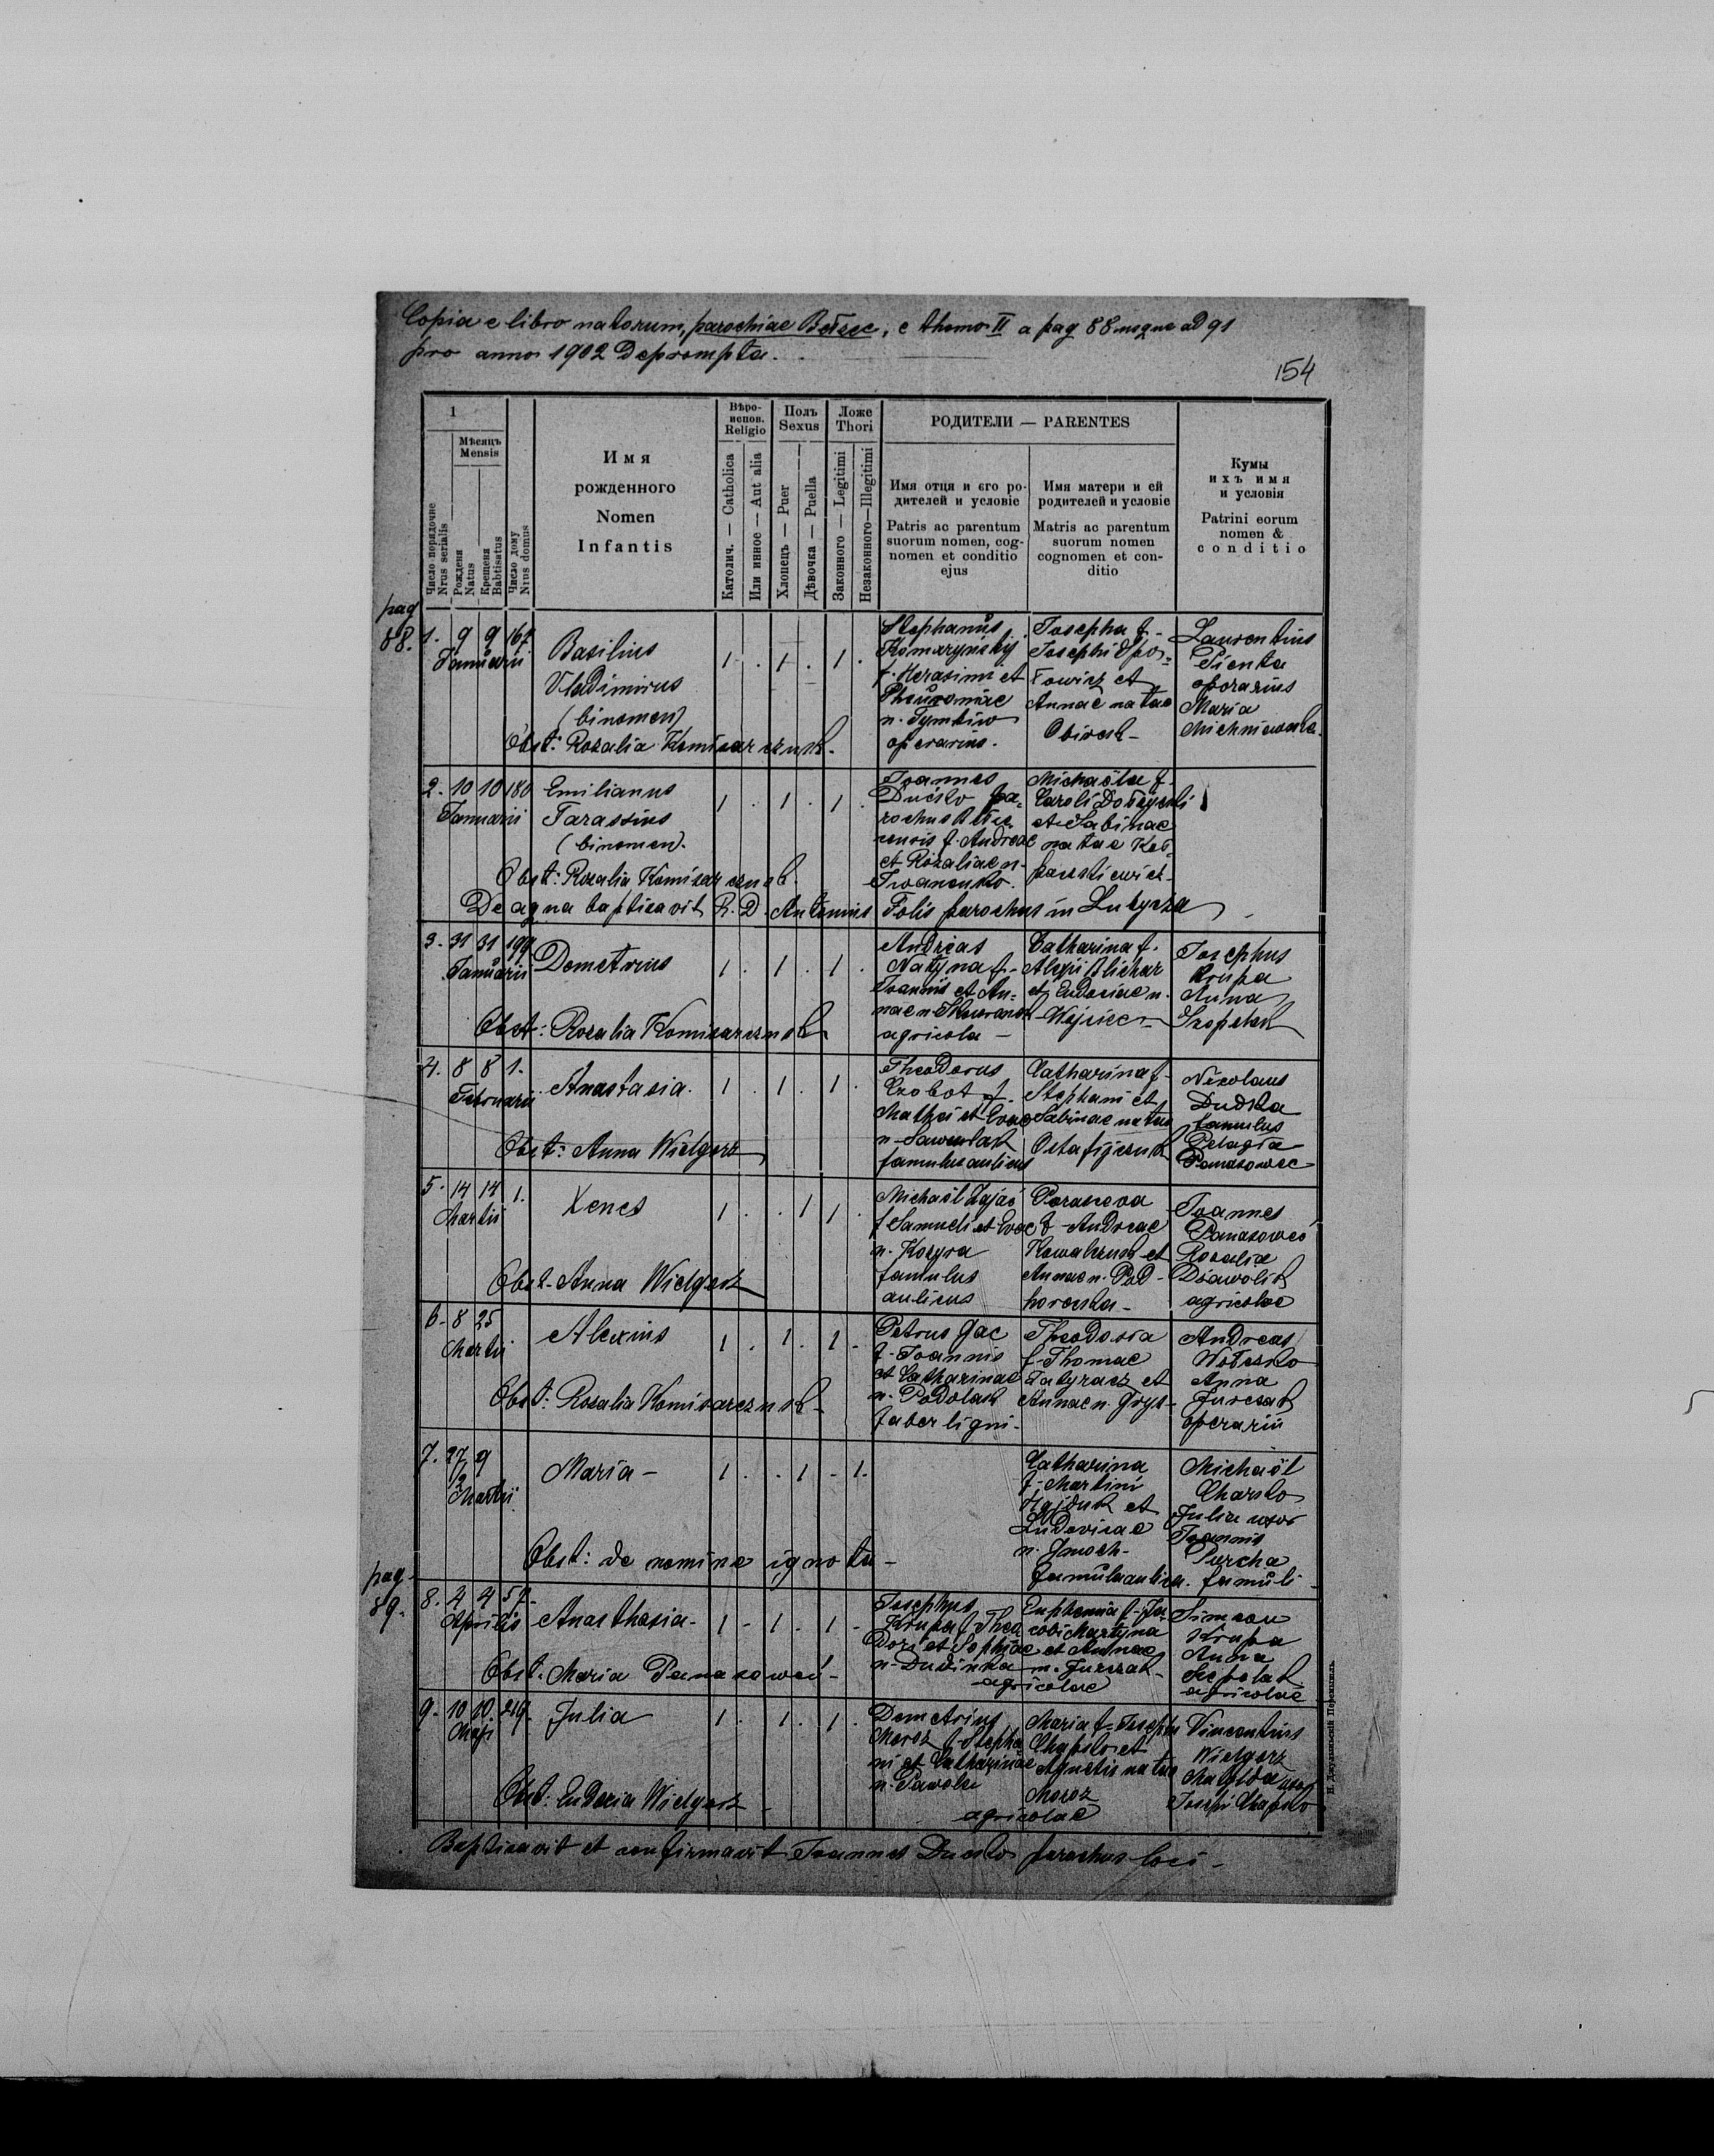 Copia e libro natorum, parochiae Bełzec, e thomo II a pag 88 usque ad 91
pro anno 1902 Deprompta.
154
1
Мѣсяцъ
Mensis
Число порядочне
Nrus serialis
Рожденя
Natus
Крещеня
Babtisatus
Число дому
Nrus domus
Имя
рожденного
Nomen
Infantis
Вѣро-
испов.
Religio
Католич. — Catholica
Или инное — Aut alia
Полъ
Sexus
Хлопець — Puer
Дѣвочка — Puella
Ложе
Thori
Законного — Legitimi
Незаконного — Illegitimi
РОДИТЕЛИ — PARENTES
Имя отця и єго ро-
дителей и условіє
Patris ac parentum
suorum nomen, cog-
nomen et conditio
ejus
Имя матери и ей
родителей и условіе
Matris ac parentum
suorum nomen
cognomen et con-
ditio
Кумы
ихъ имя
и условія
Patrini eorum
nomen &
conditio
pag
88.
1. 9 9 167
Januarii
Basilius
Vladimirus
(binomen)
1 . 1 . 1 .
Stephanus
Komaryńskij
f. Herasimi et
n. Tymkiw
operarius.
Josepha f.
Josephi
et
Annae natae
Laurentius
Pienta
operarius
Maria
Obst: Rozalia Komisarczuk.
2. 10 10 180
Januarii
Emilianus
Tarassius
(binomen).
1 . 1 . 1 .
Joannes
Dućko pa-
rochus Bełze-
censis f. Andreae
et Rozaliae n.
Iwanenko.
Michaëla f.
Caroli
et Sabinae
natae
Obst: Rozalia Komisarczuk.
De agna baptisavit R. D. Antonius Folis parochus in Lubycza
3. 31 31 199
Januarii
Demetrius
1 . 1 . 1 .
Andreas
Natyna f.
Joannis et An-
nae n.
agricola
Catharina f.
Alexii Blichar
et Eudociae n.
Wojciec
Josephus
Krupa
Anna
Obst: Rozalia Komisarczuk
4. 8 8 1.
Februarii
Anastasia.
1 . 1 . 1 .
Theodorus
Czobot f.
Mathei et Evae
n.
famulus aulicus
Catharina f.
Stephani et
Sabinae natae
Ostafijczuk
Nicolaus
Dudka
famulus
Pelagia
Panasowec
Obst: Anna Wielgosz
5. 14 14 1.
Martii
Xenes
1 . . 1 1 .
Michaël Zając
f. Samueli et Evae
n. Kozyra
famulus
aulicus
Parasceva
f. Andreae
Kowalczuk et
Annae n. Pod-
horeska
Joannes
Panasowec
Rozalia
agricolae
Obst. Anna Wielgosz
6. 8 25
Martii
Alexius
1 . 1 . 1 .
Petrus Gac
f. Joannis
et Catharinae
n. Podolak
faber ligni.
Theodosia
f. Thomae
et
Annae n. Gryt
Andreas
Wołoszko
Anna
Jurczak
operarii
Obst: Rozalia Komisarczuk
7. 27 9
/2
Martii
Maria
1 . . 1 . 1.
Catharina
f. Martini
Hajduk et
Ludovicae
n.
famula aulica.
Michaël
Charko
Julia uxor
Joannis
Purcha
famuli
Obst: de nomine ignota
pag
89.
8. 4 4 57.
Aprilis
Anasthasia
1 . 1 . 1 .
Josephus
Krupa f. Theo
dori et Sophiae
n. Dudinka
Euphemia f. Ja-
cobi Martyna
et Annae
n. Jurczak
agricolae
Simeon
Krupa
Anna
agricolae
Obst. Maria Panasowec
9. 10 10. 219.
Maji
Julia
1 . 1 . 1 .
Demetrius
Moroz f. Stepha
ni et Catharinae
n. Pawelec
Maria f. Josephi
Chapko et
Agnetis natae
Moroz
agricolae
Vincentius
Wielgosz
Matylda uxor
Josephi Chapko
Obst: Eudoxia Wielgosz
Baptisavit et confirmavit Joannes Dućko parochus loci